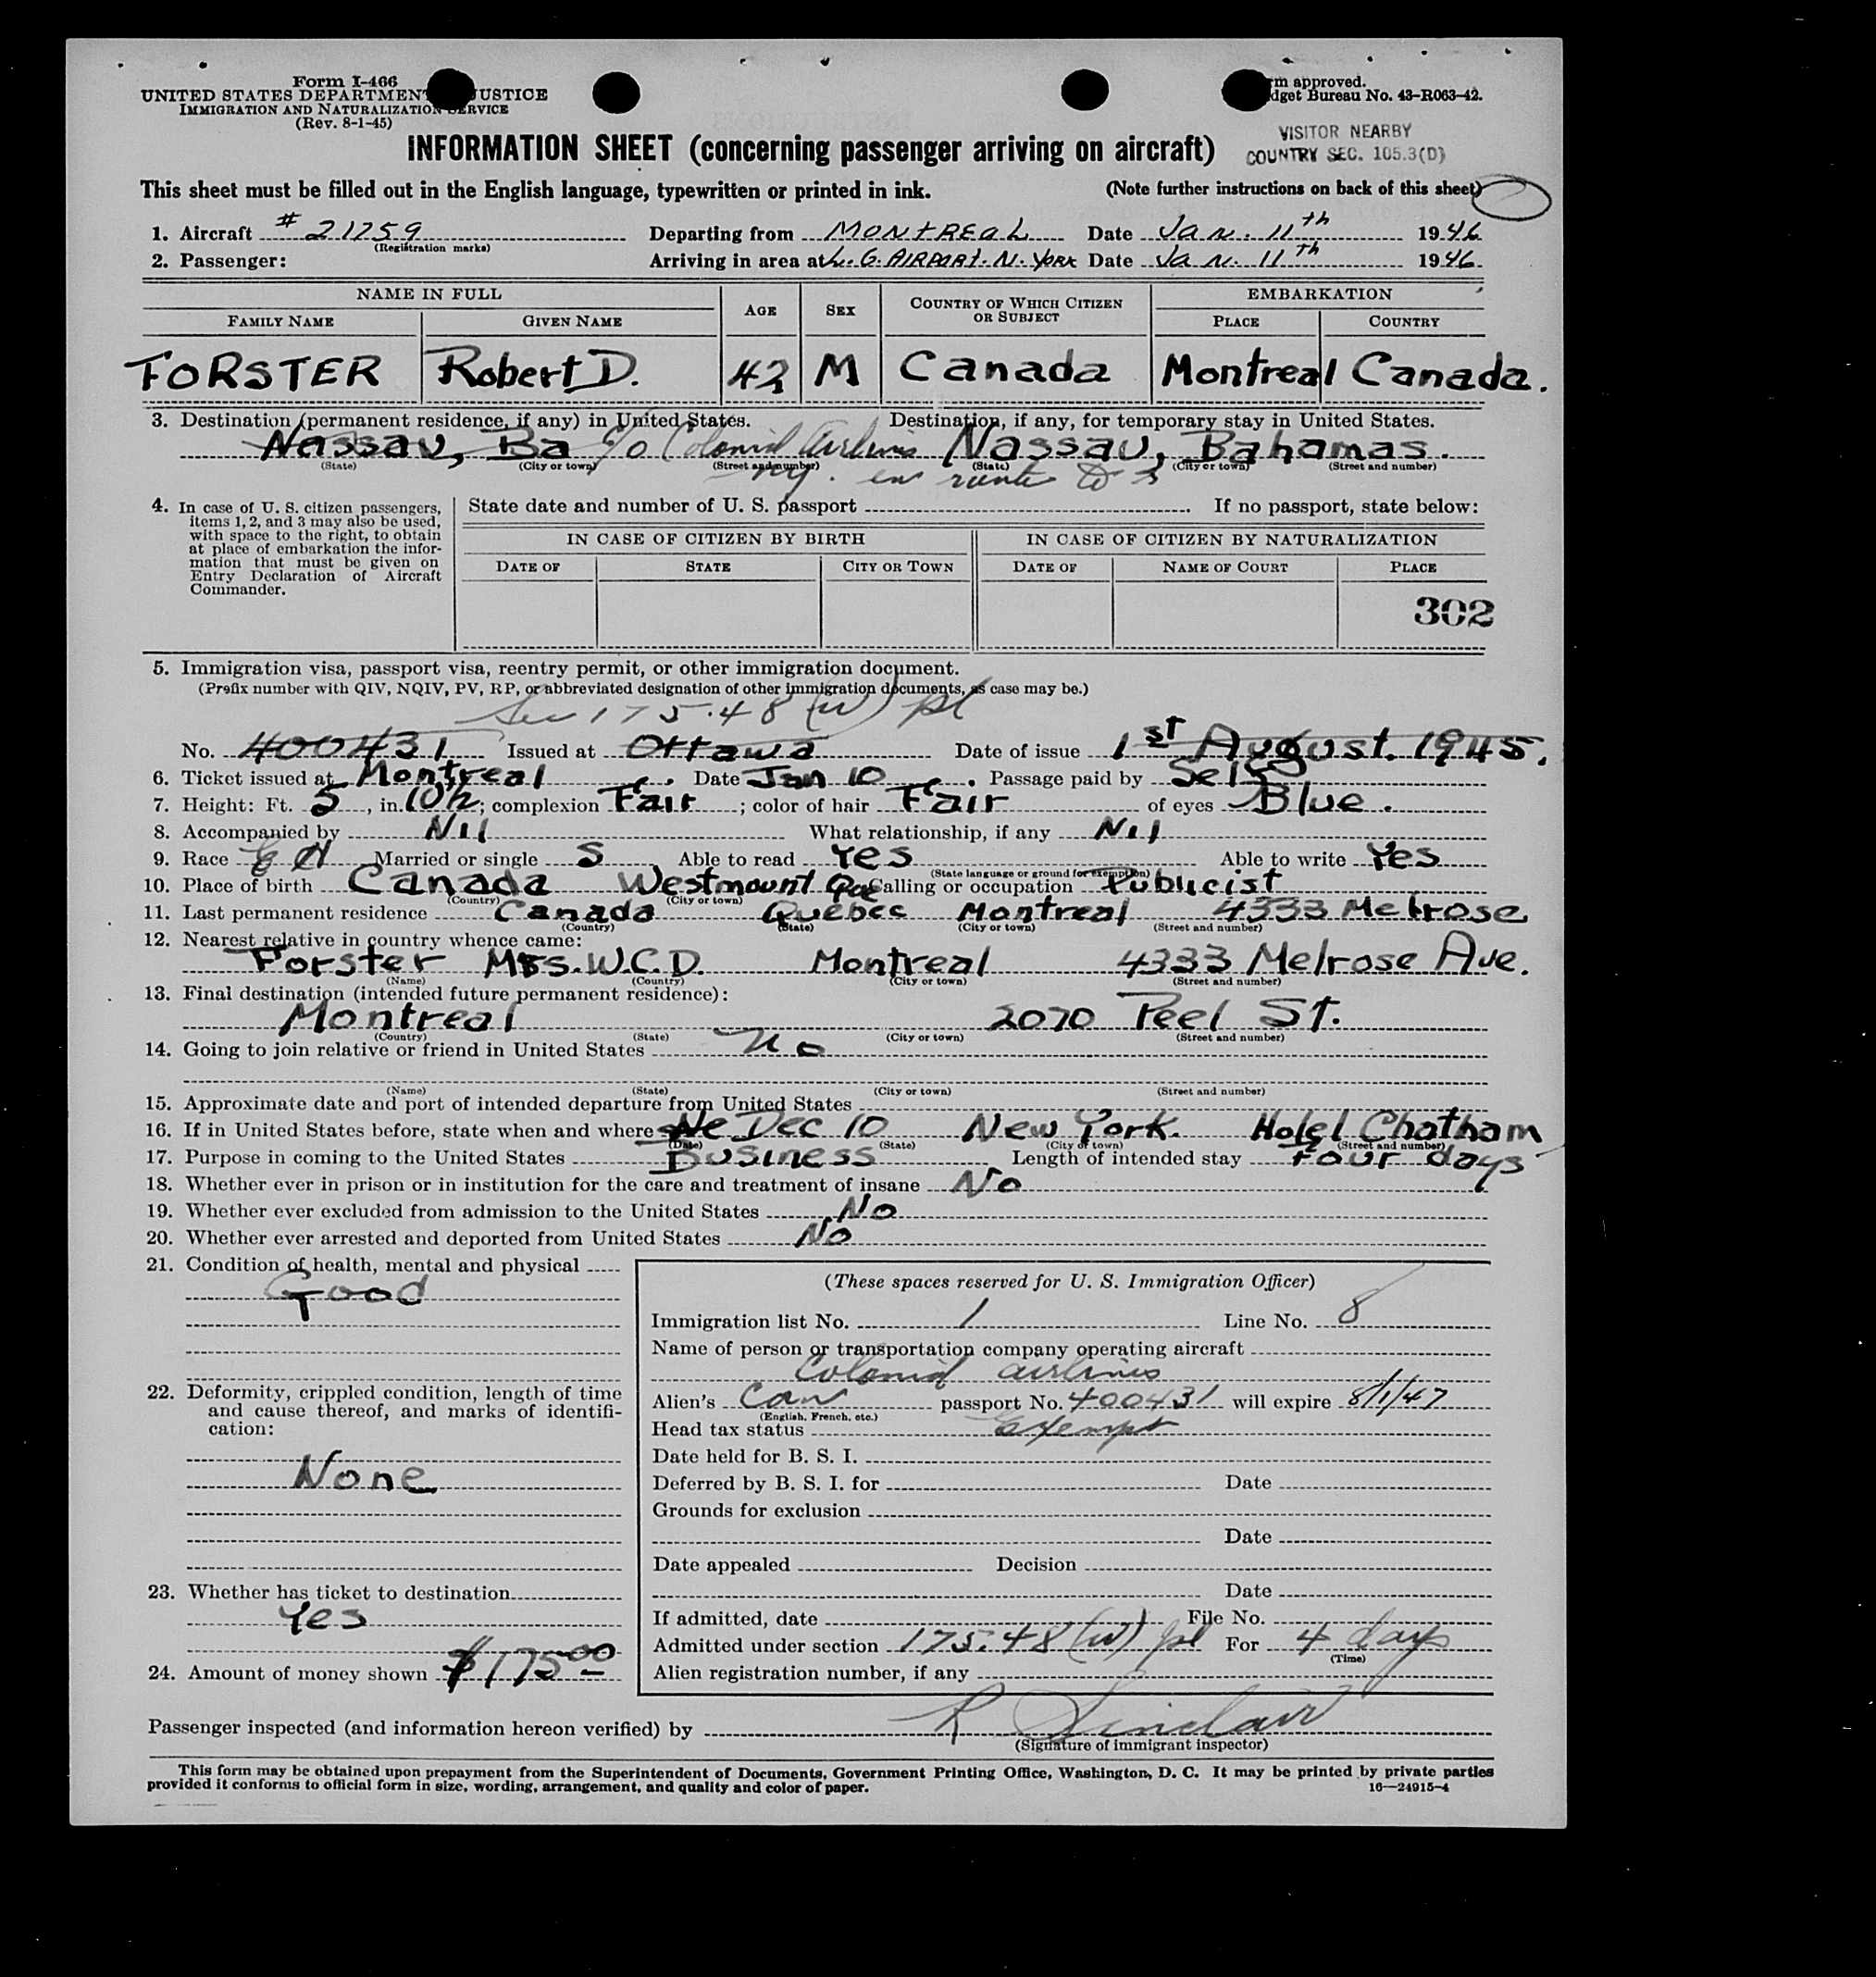 Form I-466
UNITED STATES DEPARTMENT JUSTICE
IMMIGRATION AND NATURALIZATION SERVICE
(Rev. 8-1-45)
rm approved.
dget Bureau No. 43-R063-42.
INFORMATION SHEET (concerning passenger arriving on aircraft)
VISITOR NEARBY
COUNTRY SEC. 105.3(D)
This sheet must be filled out in the English language, typewritten or printed in ink. (Note further instructions on back of this sheet)
1. Aircraft #21759 Departing from MONTREAL Date Jan. 11th 1946
(Registration marks)
2. Passenger: Arriving in area at L. G. AIRPORT. N. YORK Date Jan. 11th 1946
NAME IN FULL AGE SEX COUNTRY OF WHICH CITIZEN OR SUBJECT EMBARKATION
FAMILY NAME GIVEN NAME PLACE COUNTRY
FORSTER Robert D. 42 M Canada Montreal Canada.
3. Destination (permanent residence, if any) in United States. Destination, if any, for temporary stay in United States.
Nassau, Ba c/o Colonial Airlines Nassau, Bahamas.
(State) (City or town) (Street and number) (State) (City or town) (Street and number)
NY. en route to
4. In case of U. S. citizen passengers, items 1, 2, and 3 may also be used, with space to the right, to obtain at place of embarkation the information that must be given on Entry Declaration of Aircraft Commander.
State date and number of U. S. passport If no passport, state below:
IN CASE OF CITIZEN BY BIRTH IN CASE OF CITIZEN BY NATURALIZATION
DATE OF STATE CITY OR TOWN DATE OF NAME OF COURT PLACE
302
5. Immigration visa, passport visa, reentry permit, or other immigration document.
(Prefix number with QIV, NQIV, PV, RP, or abbreviated designation of other immigration documents, as case may be.)
Sec 175.48 (w) pl
No. 400431 Issued at Ottawa Date of issue 1st August. 1945.
6. Ticket issued at Montreal Date Jan 10 Passage paid by Self
7. Height: Ft. 5, in. 10½; complexion Fair; color of hair Fair of eyes Blue.
8. Accompanied by Nil What relationship, if any Nil
9. Race Married or single S Able to read Yes Able to write Yes
(State language or ground for exemption)
10. Place of birth Canada Westmount Que Calling or occupation Publicist
(Country) (City or town)
11. Last permanent residence Canada Quebec Montreal 4333 Melrose
(Country) (State) (City or town) (Street and number)
12. Nearest relative in country whence came:
Forster Mrs. W.C.D. Montreal 4333 Melrose Ave.
(Name) (Country) (City or town) (Street and number)
13. Final destination (intended future permanent residence):
Montreal 2070 Peel St.
(Country) (State) (City or town) (Street and number)
14. Going to join relative or friend in United States No
(Name) (State) (City or town) (Street and number)
15. Approximate date and port of intended departure from United States
16. If in United States before, state when and where Dec 10 New York. Hotel Chatham
(Date) (State) (City or town) (Street and number)
17. Purpose in coming to the United States Business Length of intended stay Four days
18. Whether ever in prison or in institution for the care and treatment of insane No
19. Whether ever excluded from admission to the United States No
20. Whether ever arrested and deported from United States No
21. Condition of health, mental and physical
Good
22. Deformity, crippled condition, length of time and cause thereof, and marks of identification:
None
23. Whether has ticket to destination
Yes
24. Amount of money shown $175.00
(These spaces reserved for U. S. Immigration Officer)
Immigration list No. 1 Line No. 8
Name of person or transportation company operating aircraft
Colonial airlines
Alien's Can passport No. 400431 will expire 8/1/47
(English, French, etc.)
Head tax status exempt
Date held for B. S. I.
Deferred by B. S. I. for Date
Grounds for exclusion
Date
Date appealed Decision
Date
If admitted, date File No.
Admitted under section 175.48 (w) pl For 4 days
(Time)
Alien registration number, if any
Passenger inspected (and information hereon verified) by R Sinclair
(Signature of immigrant inspector)
This form may be obtained upon prepayment from the Superintendent of Documents, Government Printing Office, Washington, D. C. It may be printed by private parties
provided it conforms to official form in size, wording, arrangement, and quality and color of paper. 16—24915-4